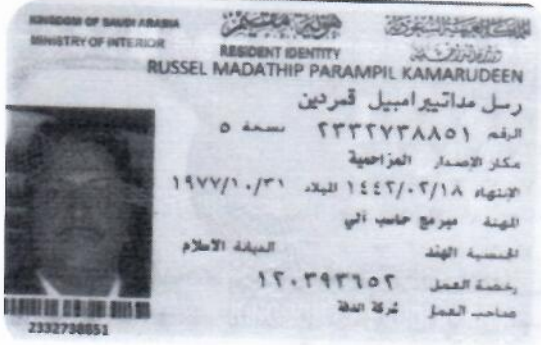 KINGDOM OF SAUDI ARABIA هوية مقيم المملكة العربية السعودية
MINISTRY OF INTERIOR RESIDENT IDENTITY وزارة الداخلية
RUSSEL MADATHIP PARAMPIL KAMARUDEEN
رسل مداتيبرامبيل قمردين
الرقم ٢٣٣٢٧٣٨٨٥١ نسخة ٥
مكان الإصدار المزاحمية
الإنتهاء ١٤٤٢/٠٢/١٨ الميلاد ١٩٧٧/١٠/٣١
المهنة مبرمج حاسب آلي
الجنسية الهند الديانة الاسلام
رخصة العمل ١٢٠٣٩٣٦٥٢
صاحب العمل شركة الدقة
2332738851